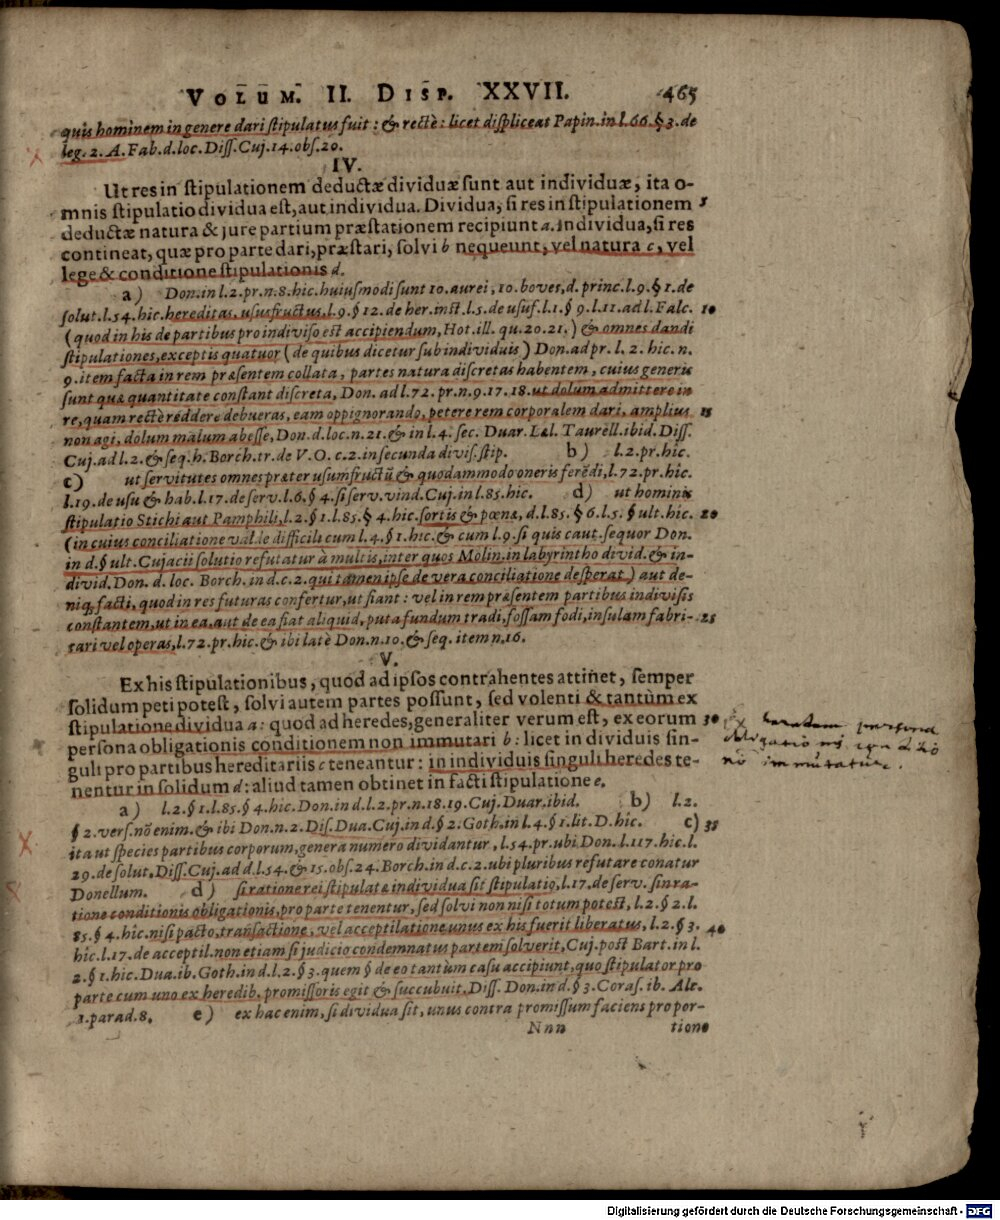 VOLUM. II. DISP. XXVII. 465
quis hominem in genere dari stipulatus fuit: & rectè: licet displiceat Papin. in l. 66. § 3. de
leg. 2. A. Fab. d. loc. Diss. Cuj. 14. obs. 20.
IV.
Ut res in stipulationem deductæ dividuæ sunt aut individuæ, ita o-
mnis stipulatio dividua est, aut individua. Dividua, si res in stipulationem 5
deductæ natura & jure partium præstationem recipiunt a. individua, si res
contineat, quæ pro parte dari, præstari, solvi b nequeunt, vel natura c, vel
lege & conditione stipulationis d.
a) Don. in l. 2. pr. n. 8. hic. huiusmodi sunt 10. aurei, 10. boves, d. princ. l. 9. § 1. de
solut. l. 54. hic. hereditas, ususfructus, l. 9. § 12. de her. inst. l. 5. de usuf. l. 1. § 9. l. 11. ad l. Falc. 10
(quod in his de partibus pro indiviso est accipiendum, Hot. ill. qu. 20. 21,) & omnes dandi
stipulationes, exceptis quatuor (de quibus dicetur sub individuis) Don. ad pr. l. 2. hic. n.
9. item facta in rem præsentem collata, partes natura discretas habentem, cuius generis
sunt quæ quantitate constant discreta, Don. ad l. 72. pr. n. 9. 17. 18. ut dolum admittere in
re, quam rectè reddere debueras, eam oppignorando, petere rem corporalem dari, amplius 15
non agi, dolum malum abesse, Don. d. loc. n. 21. & in l. 4. sec. Duar. L&l. Taurell. ibid. Diss.
Cuj. ad l. 2. & seq. h. Borch. tr. de V. O. c. 2. in secunda divis. stip. b) l. 2. pr. hic.
c) ut servitutes omnes præter usumfructū & quodammodo oneris ferēdi, l. 72. pr. hic.
l. 19. de usu & hab. l. 17. de serv. l. 6. § 4. si serv. vind. Cuj. in l. 85. hic. d) ut hominis
stipulatio Stichi aut Pamphili, l. 2. § 1. l. 85. § 4. hic. sortis & pœnæ, d. l. 85. § 6. l. 5. § ult. hic. 20
(in cuius conciliatione valde difficili cum l. 4. § 1. hic. & cum l. 9. si quis caut. sequor Don.
in d. § ult. Cujacii solutio refutatur à multis, inter quos Molin. in labyrintho divid. & in-
divid. Don. d. loc. Borch. in d. c. 2. qui tamen ipse de vera conciliatione desperat) aut de-
niq; facti, quod in res futuras confertur, ut fiant: vel in rem præsentem partibus indivisis
constantem, ut in ea, aut de ea fiat aliquid, puta fundum tradi, fossam fodi, insulam fabri- 25
cari vel operas, l. 72. pr. hic. & ibi latè Don. n. 10. & seq. item n. 16.
V.
Ex his stipulationibus, quod ad ipsos contrahentes attinet, semper
solidum peti potest, solvi autem partes possunt, sed volenti & tantùm ex
stipulatione dividua a: quod ad heredes, generaliter verum est, ex eorum 30
persona obligationis conditionem non immutari b: licet in dividuis sin-
guli pro partibus hereditariis c teneantur: in individuis singuli heredes te-
nentur in solidum d: aliud tamen obtinet in facti stipulatione e.
persona
nō immutatur.
a) l. 2. § 1. l. 85. § 4. hic. Don. in d. l. 2. pr. n. 18. 19. Cuj. Duar. ibid. b) l. 2.
§ 2. vers. nō enim. & ibi Don. n. 2. Dis. Dua. Cuj. in d. § 2. Goth. in l. 4. § 1. lit. D. hic. c) 35
ita ut species partibus corporum, genera numero dividantur, l. 54. pr. ubi Don. l. 117. hic. l.
29. de solut. Diss. Cuj. ad d. l. 54. & 15. obs. 24. Borch. in d. c. 2. ubi pluribus refutare conatur
Donellum. d) si ratione rei stipulatæ individua sit stipulatio, l. 17. de serv. sin ra-
tione conditionis obligationis, pro parte tenentur, sed solvi non nisi totum potest, l. 2. § 2. l.
85. § 4. hic. nisi pacto, transactione, vel acceptilatione unus ex his fuerit liberatus, l. 2. § 3. 40
hic. l. 17. de acceptil. non etiam si judicio condemnatus partem solverit, Cuj. post Bart. in l.
2. § 1. hic. Dua. ib. Goth. in d. l. 2. § 3. quem § de eo tantùm casu accipiunt, quo stipulator pro
parte cum uno ex heredib. promissoris egit & succubuit. Diss. Don. in d. § 3. Coras. ib. Alc.
1. parad. 8. e) ex hac enim, si dividua sit, unus contra promissum faciens propor-
Nnn tione
Digitalisierung gefördert durch die Deutsche Forschungsgemeinschaft - DFG